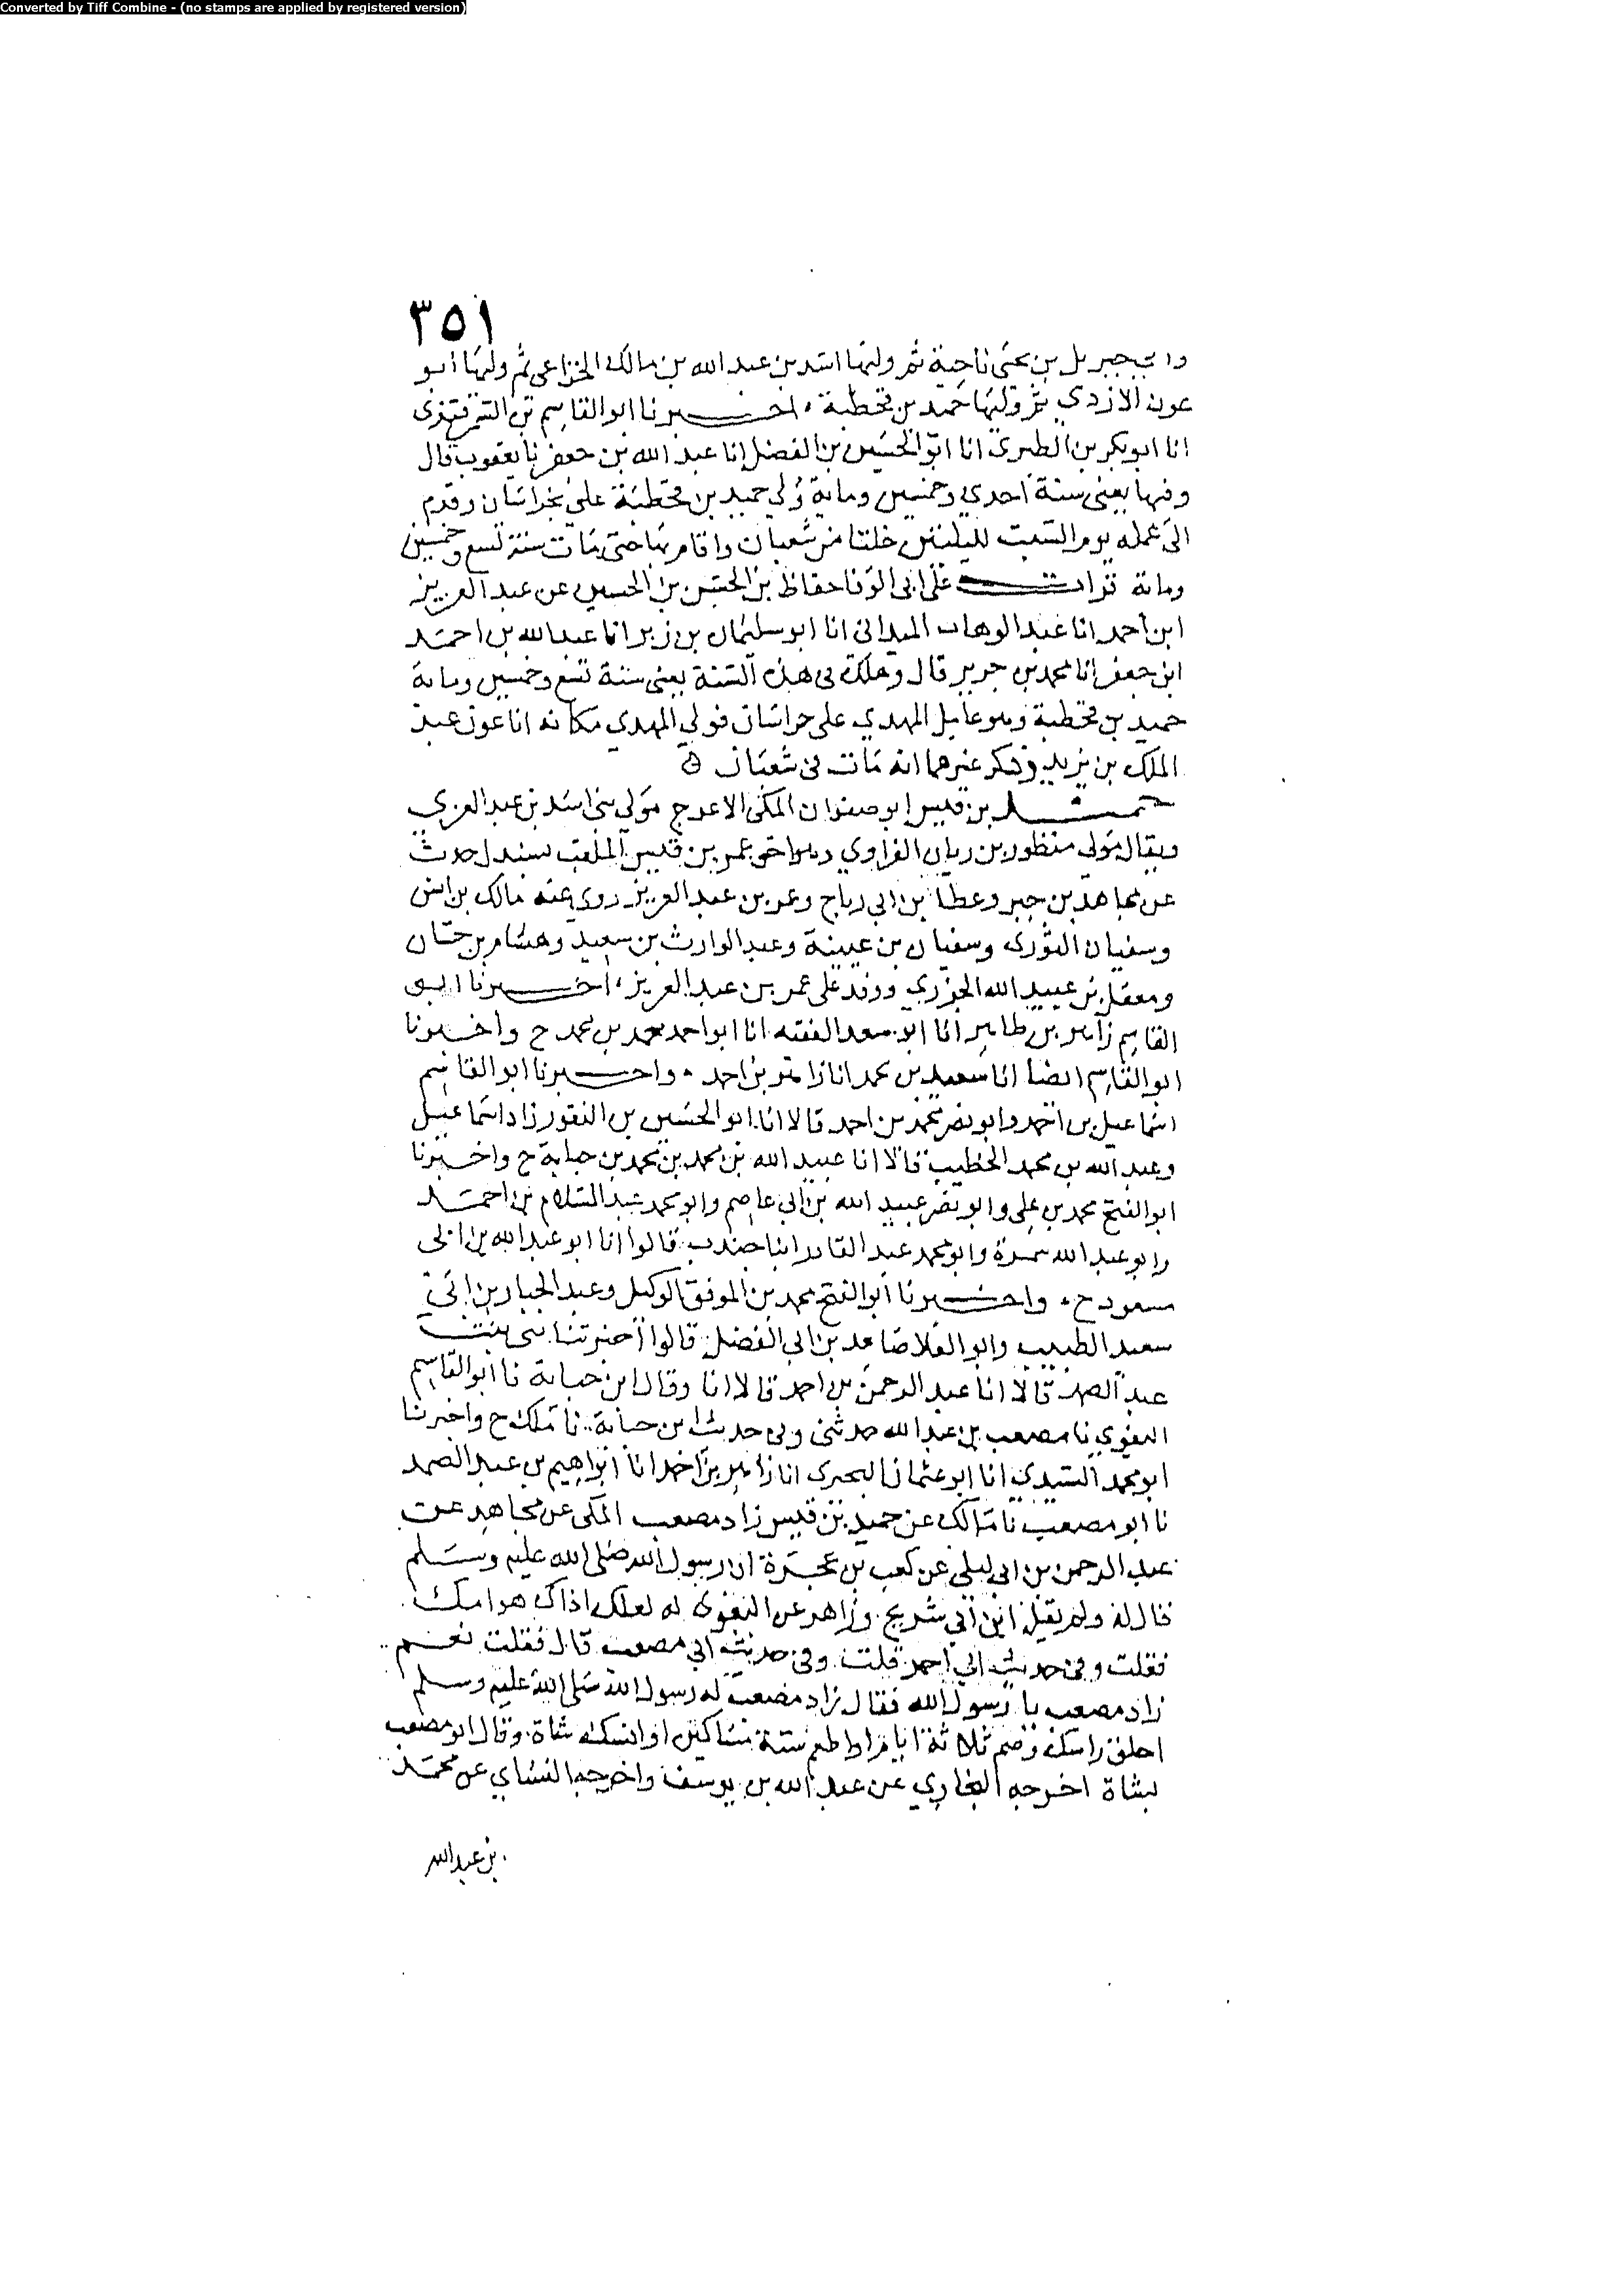 Converted by Tiff Combine - (no stamps are applied by registered version)
٣٥١
وابي جبريل بن يحيى ناحية ثم وليها اسد بن عبد الله بن مالك الخزاعي ثم وليها ابو
عون الازدي ثم وليها حميد بن قحطبة، اخبرنا ابو القاسم بن السمرقندي
انا ابو بكر بن الطبري انا ابو الحسين بن الفضل انا عبد الله بن جعفر نا يعقوب قال
وفيها يعني سنة احدي وخمسين وماية ولي حميد بن قحطبة علي خراسان وقدم
الى عمله يوم السبت لليلتين خلتا من شعبان واقام بها حتى مات سنة تسع وخمسين
وماتة قرات على ابي الوفا حفاظ بن الحسن بن الحسين عن عبد العزيز
ابن احمد انا عبد الوهاب الميداني انا ابو سليمان بن زبر انا عبد الله بن احمد
ابن جعفر انا محمد بن جرير قال وهلك في هذه السنة يعني سنة تسع وخمسين وماية
حميد بن قحطبة وهو عامل المهدي على خراسان فولي المهدي مكانه ابا عون عبد
الملك بن يزيد وذكر غيرهما انه مات في شعبان
حميد بن قيس ابو صفوان المكي الاعرج مولي بني اسد بن عبد العزي
ويقال مولى منظور بن ريان الفزاوي وهو اخو عمر بن قيس الملقب بسندل حدث
عن مجاهد بن جبر وعطا بن ابي رباح وعمر بن عبد العزيز روي عنه مالك بن انس
وسفيان الثوري وسفيان بن عيينة وعبد الوارث بن سعيد وهشام بن حسان
ومعقل بن عبيد الله الجزري ووفد على عمر بن عبد العزيز، اخبرنا ابو
القاسم زاهر بن طاهر انا ابو سعد الفقيه انا ابو احمد محمد بن محمد ح واخبرنا
ابو القاسم ايضا انا سعيد بن محمد انا زاهر بن احمد. واخبرنا ابو القاسم
اسماعيل بن احمد وابو نصر محمد بن احمد قالا انا ابو الحسين بن النقور زاد اسماعيل
وعبد الله بن محمد الخطيب قالا انا عبيد الله بن محمد بن محمد بن حبابة ح واخبرنا
ابو الفتح محمد بن علي وابو نصر عبيد الله بن ابي عاصم وابو محمد عبد السلام بن احمد
وابو عبد الله سمرة وابو محمد عبد القادر ابنا جندب قالوا انا ابو عبد الله بن ابي
مسعود ح. واخبرنا ابو الفتح محمد بن الموفق الوكيل وعبد الجبار بن ابي
سعيد الطبيب وابو العلا صاعد بن ابي الفضل قالوا اخبرتنا بيبى بنت
عبد الصمد قالا انا عبد الرحمن بن احمد قالا انا وقال ابن حبابة نا ابو القاسم
البغوي نا مصعب بن عبد الله حدثني وفي حديث ابن حبابة نا ملك ح واخبرنا
ابو محمد السيدي انا ابو عثمان البحيري انا زاهر بن احمد انا ابراهيم بن عبد الصمد
نا ابو مصعب نا مالك عن حميد بن قيس زاد مصعب المكي عن مجاهد عن
عبد الرحمن بن ابي ليلى عن كعب بن عجرة ان رسول الله صلى الله عليه وسلم
قال له ولم يقل ابن ابي شريح وزاهر عن البغوي له لعلك اذاك هوامك
فقلت وفي حديث ابي احمد قلت وفي حديث ابي مصعب قال فقلت نعم
زاد مصعب يا رسول الله فقال زاد مصعب له رسول الله صلى الله عليه وسلم
احلق راسك وصم ثلاثة ايام او اطعم ستة مساكين او انسك شاة. وقال ابو مصعب
بشاة اخرجه البخاري عن عبد الله بن يوسف واخرجه النساي عن محمد
بن عبد الله